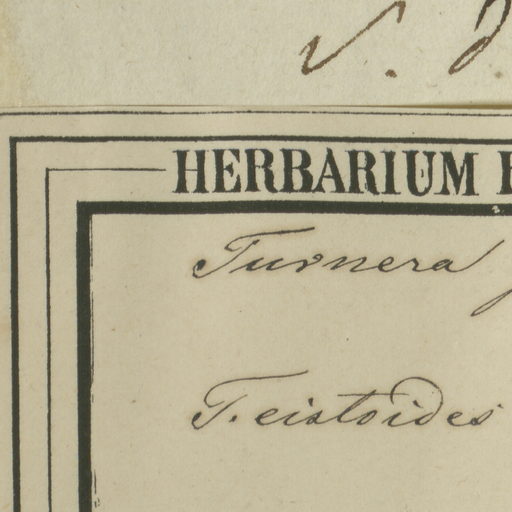 S.
HERBARIUM
Turnera
T. cistoides